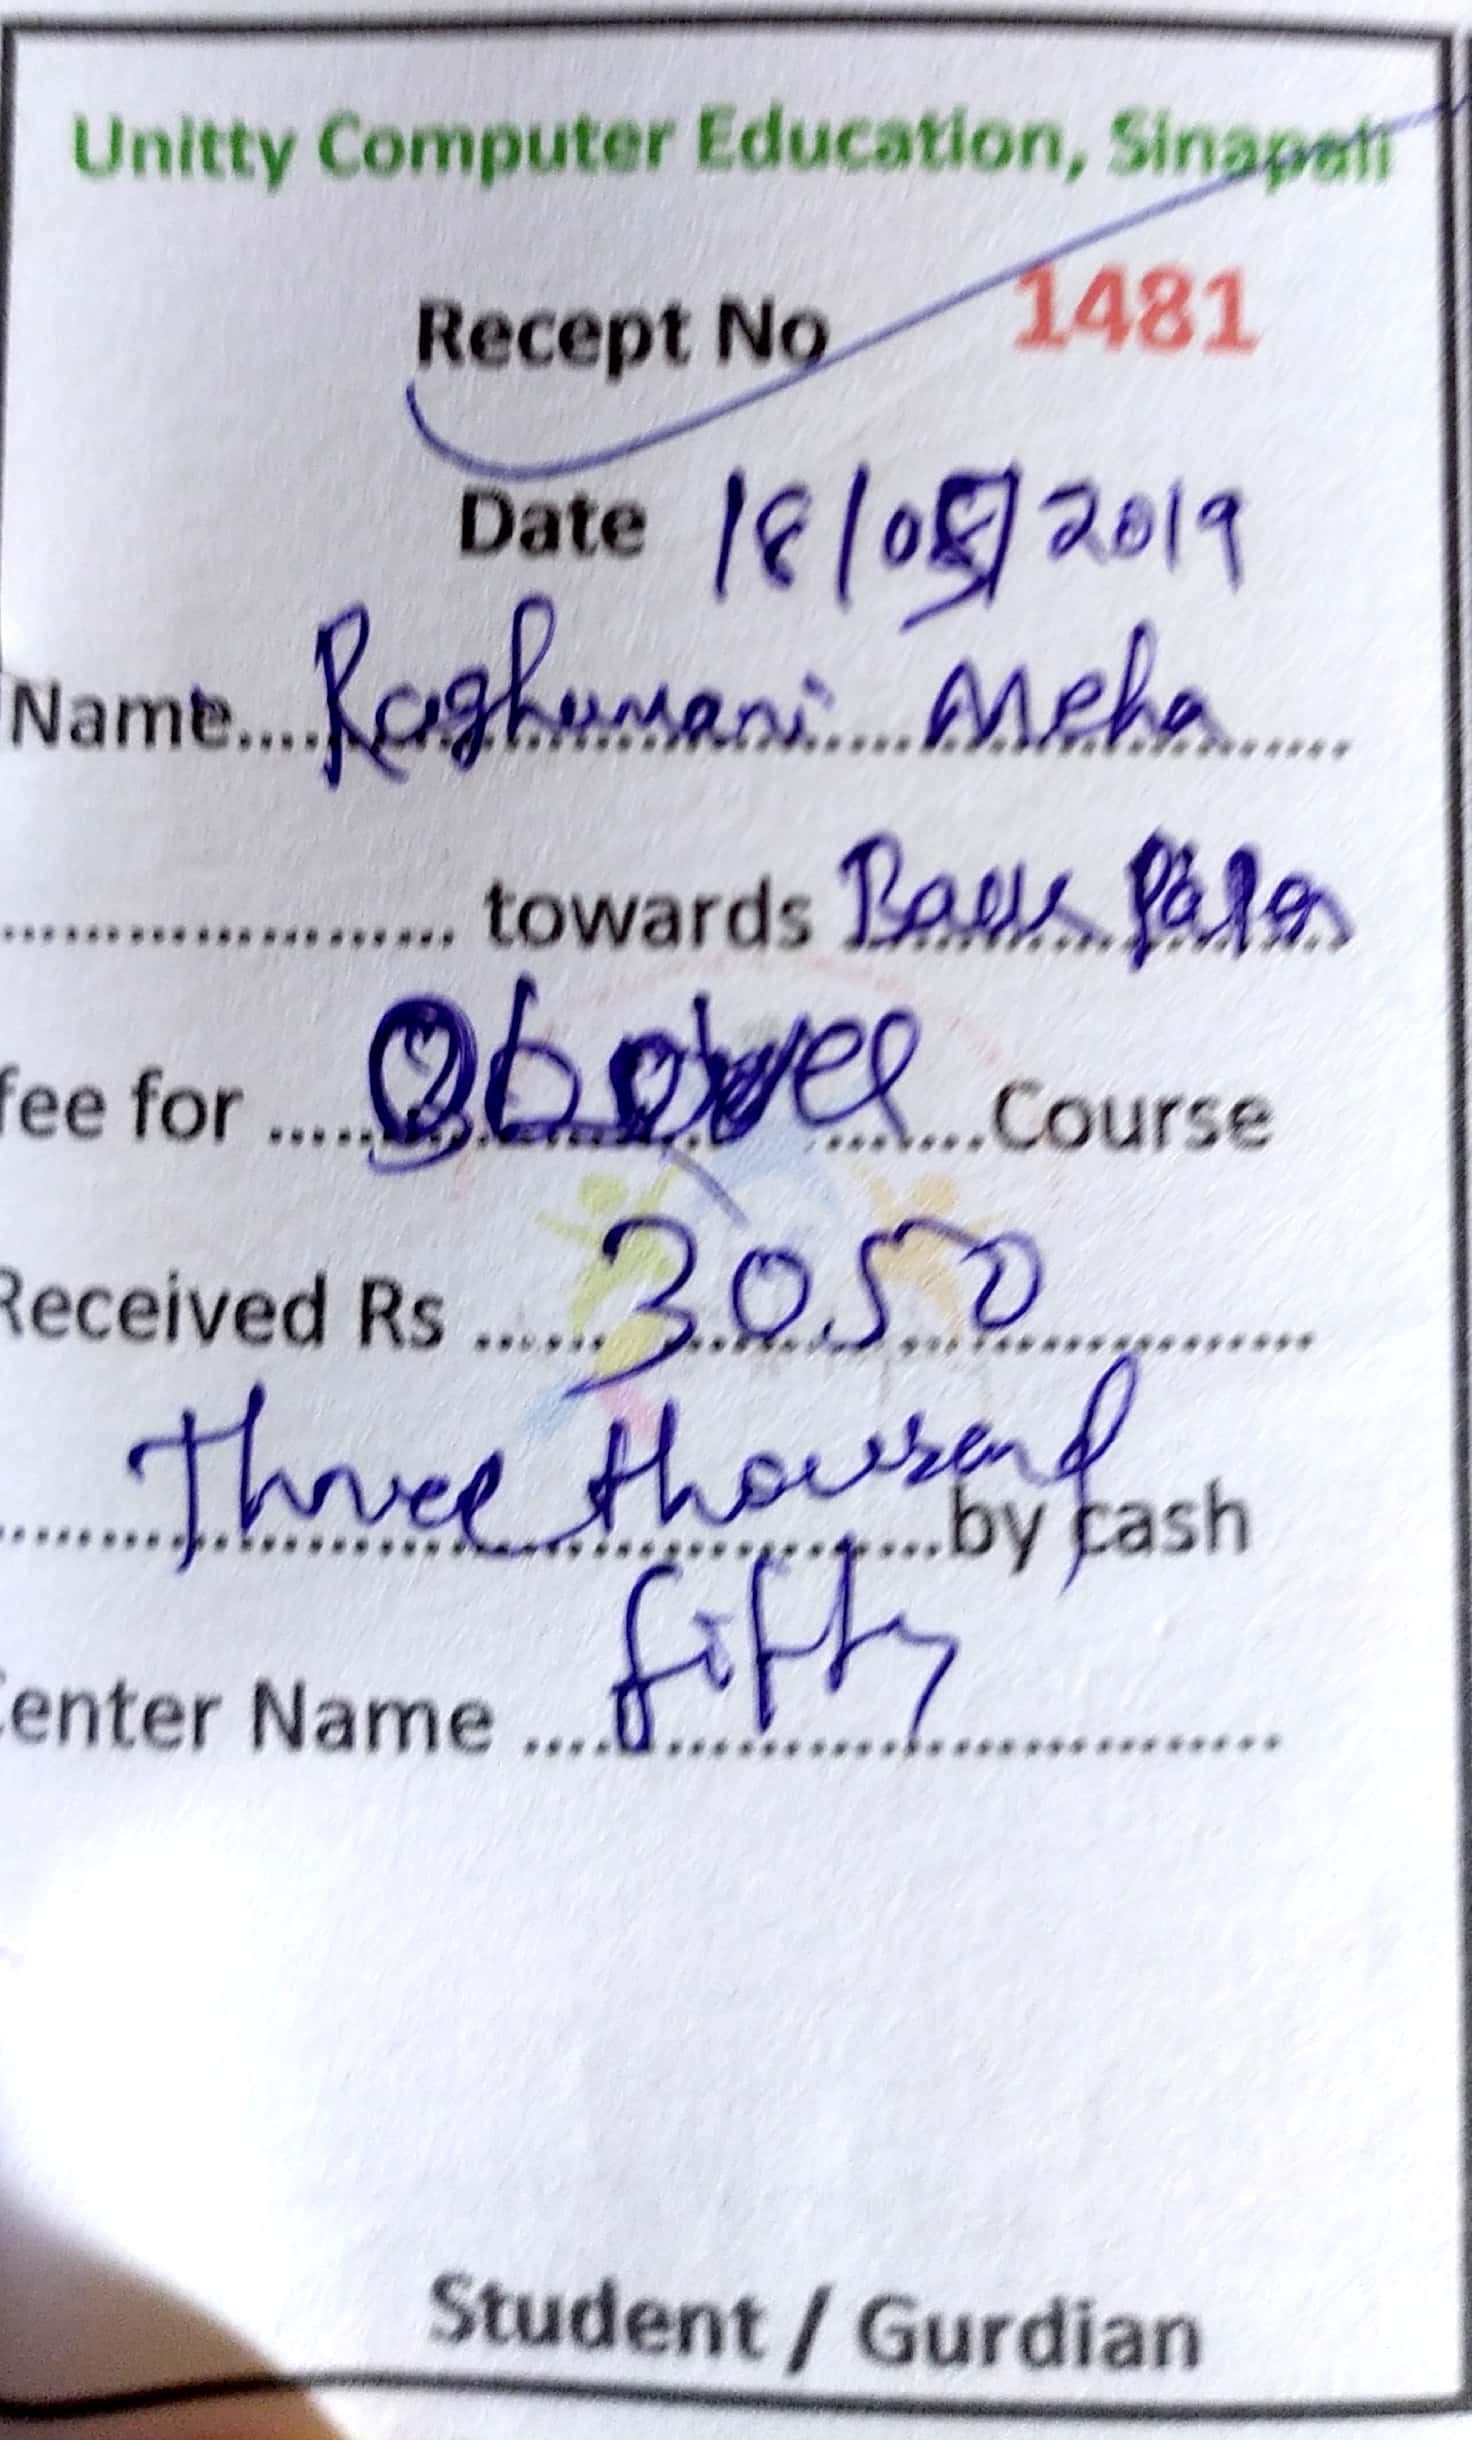 Unitty Computer Education, Sinapali
Recept No 1481
Date 18/05/2019
Name.... Raghumani Meha
.................... towards Back Paper
fee for ..... Above ........Course
Received Rs ...... 3050
Three thousand by cash
fifty
enter Name ....
Student / Gurdian